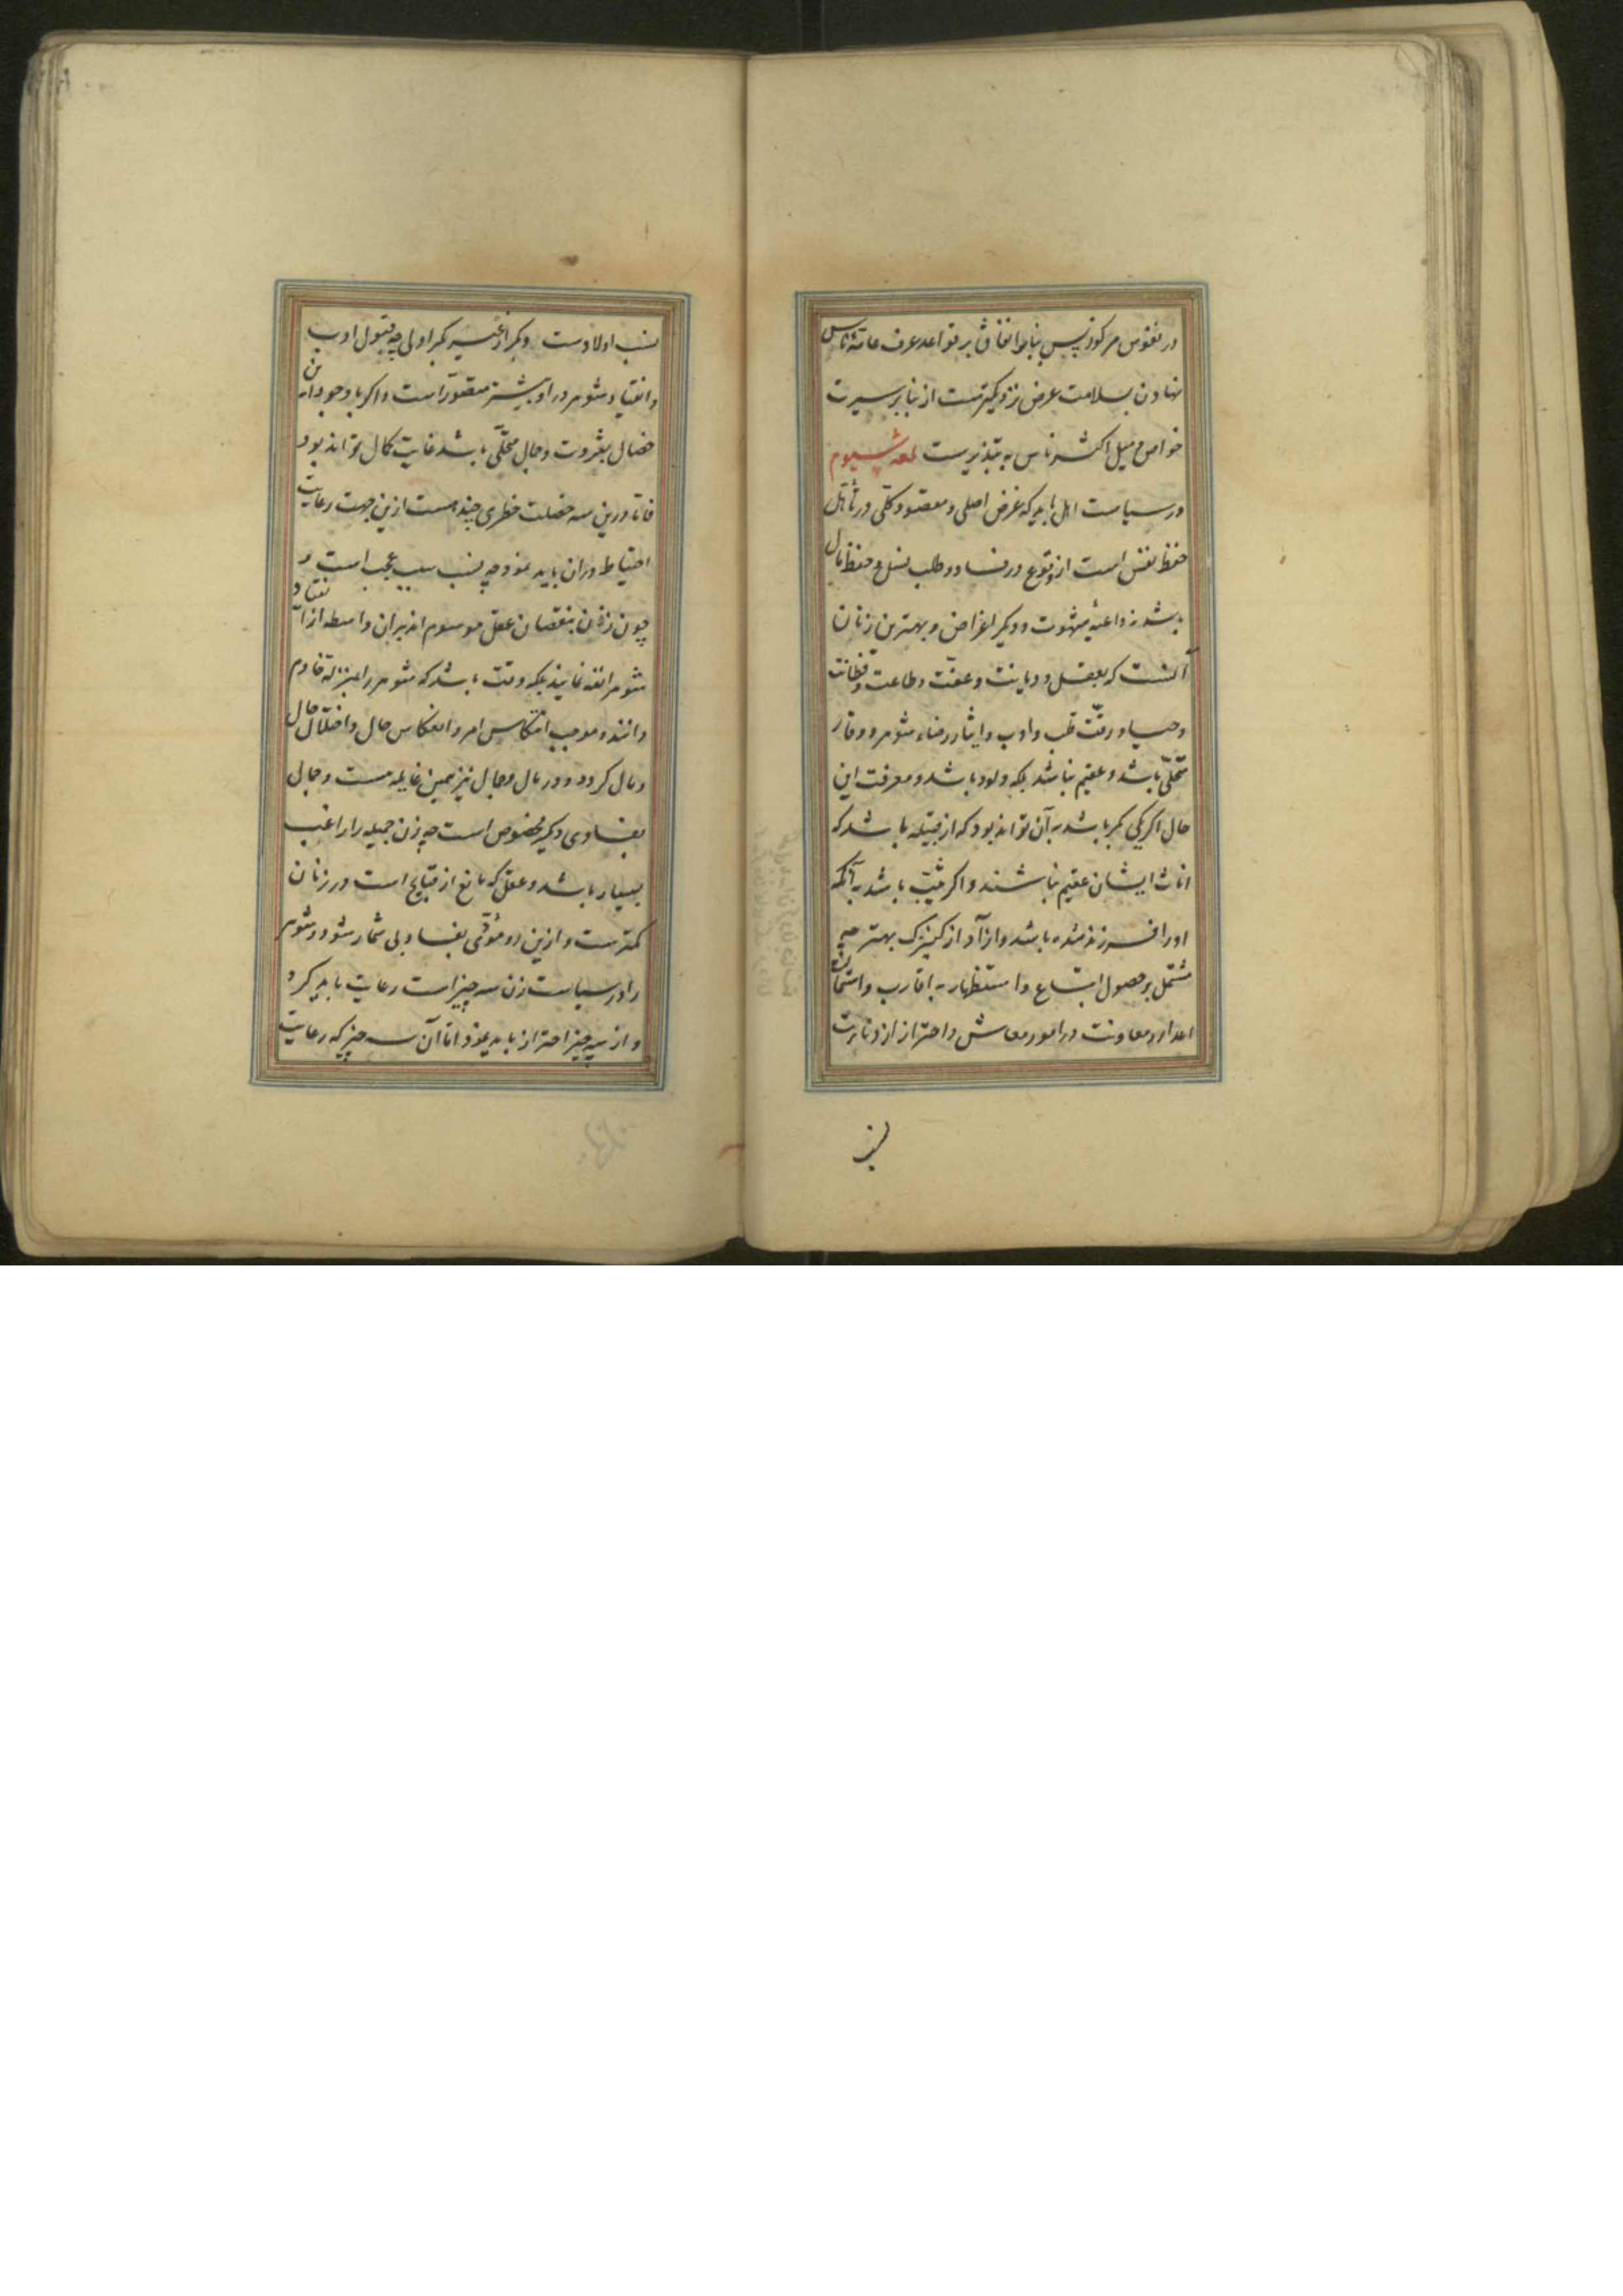 در نفوس مرکوز پس بناء انفاق بر قواعد عرف عامهٔ ناس
نهادن بسلامت عرض نزدیکترست از بنا بر سیرت
خواص و میل اکثر ناس به تبذیرست لمعه سیوم
در سیاست اهل باید که غرض اصلی و مقصود کلّی در تأهّل
حفظ نفس است از وقوع در فساد و طلب نسل و حفظ مال
باشد نه داعیهٔ شهوت و دیگر اغراض و بهترین زنان
آنست که بعقل و دیانت و عفّت و طاعت و فطانت
و حیا و رقّت قلب و ادب و ایثار رضاء شوهر و وقار
متحلّی باشد و عقیم نباشد بلکه ولود باشد و معرفت این
حال اگر یکی بکر باشد به آن تواند بود که از قبیله باشد که
اناث ایشان عقیم نباشند و اگر ثیّب باشد به آنکه
او را فرزند شده باشد و آزاد از کنیزک بهتر چه
مشتمل بر حصول اتباع و استظهار به اقارب و استمالت
اعدا و معاونت در امور معاش و احتراز از دنائت
نسب
نسب اولادست و بکر از غیر بکر اولی چه قبول ادب
و انقیاد شوهر در او بیشتر متصوّر است و اگر با وجود این
خصال بثروت و جمال محلّی باشد غایت کمال تواند بود
فاما درین سه خصلت خطری چند هست ازین جهت رعایت
احتیاط در آن باید نمود چه نسب سبب عجب است و
چون زنان بنقصان عقل موسوم اند بدان واسطه از انقیاد
شوهر انفه نمایند بلکه وقت باشد که شوهر را بمنزلهٔ خادم
دانند و موجب انتکاس امر و انعکاس حال و اختلال حال
و مال گردد و در مال و جمال نیز همین غایله هست و جمال
بفسادی دیگر مخصوص است چه زن جمیله را راغب
بسیار باشد و عقل که مانع از قبایح است در زنان
کمترست و ازین رو مؤدّی بفساد بی شمار شود و شوهر
را در سیاست زن سه چیز است رعایت باید کرد
و از سه چیز احتراز باید نمود اما آن سه چیز که رعایت